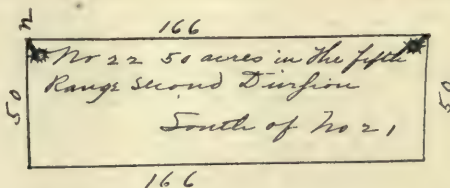 n
166
No 22 50 acres in the fifth
Range Second Division
South of No 21
50
50
166